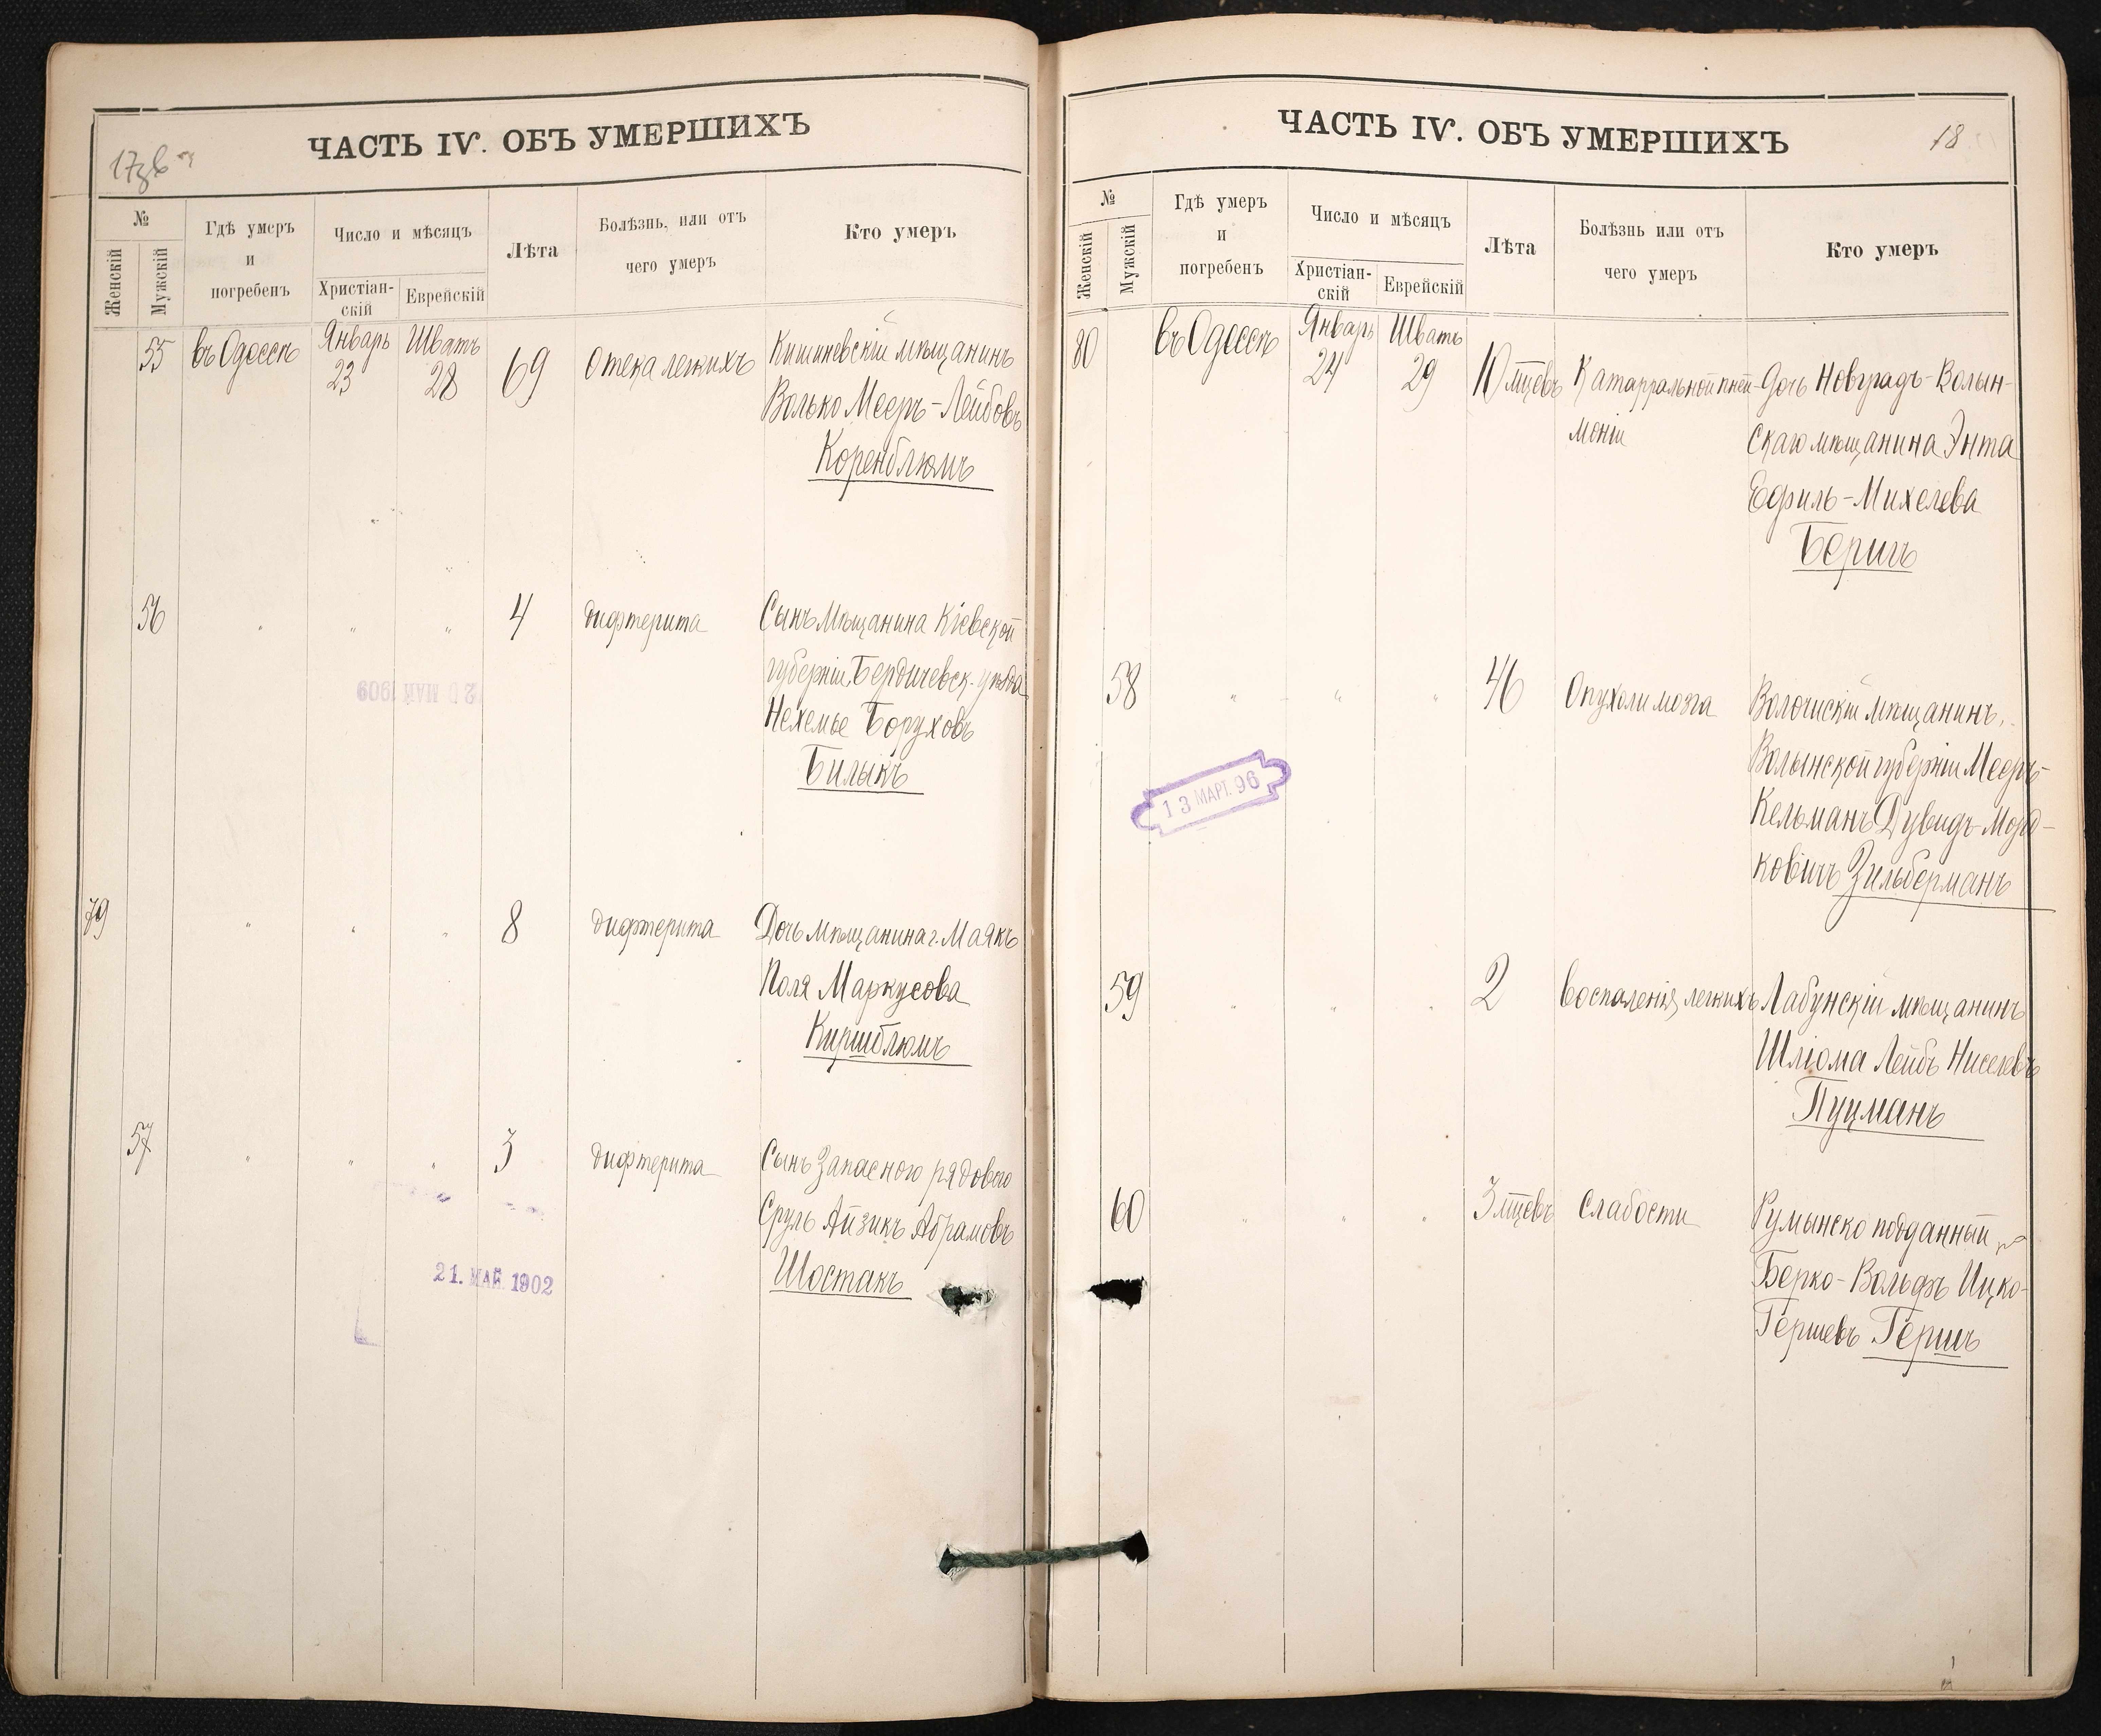 ЧАСТЬ IV. ОБЪ УМЕРШИХЪ
№
Женскій
Мужскій
Гдѣ умеръ
и
погребенъ
Число и мѣсяцъ
Христіан-
скій
Еврейскій
Лѣта
Болѣзнь, или отъ
чего умеръ
Кто умеръ
55 въ Одессѣ Январь 23 Шватъ 28 69 Отека легкихъ Кишиневскій мѣщанинъ
Волько Мееръ-Лейбовъ
Коренблюмъ
56 " " " 4 дифтерита Сынъ Мѣщанина Кіевской
губерніи, Бердичевск. уѣзда
Нехемье Боруховъ
Билыкъ
20 МАЙ 1909
79 " " " 8 дифтерита Дочь мѣщанина г. Маякъ
Поля Маркусова
Киршблюмъ
57 " " " 3 дифтерита Сынъ Запасного рядового
Сруль Айзикъ Абрамовъ
Шостакъ
21. МАЙ 1902
ЧАСТЬ IV. ОБЪ УМЕРШИХЪ
18
№
Женскій
Мужскій
Гдѣ умеръ
и
погребенъ
Число и мѣсяцъ
Христіан-
скій
Еврейскій
Лѣта
Болѣзнь или отъ
чего умеръ
Кто умеръ
80 въ Одессѣ Январь 24 Шватъ 29 10 мцевъ Катарральной пней- Дочь Новградъ-Волын-
моніи скаго мѣщанина Энта
Ефриль-Михелева
Беришъ
58 " " " 46 Опухоли мозга Волочискій мѣщанинъ,
Волынской губерніи Мееръ-
Кельманъ Дувидъ-Морд-
ковичъ Зильберманъ
13 МАРТ. 96
59 " " " 2 Воспаленія легкихъ Лабунскій мѣщанинъ
Шліома Лейбъ Нисилевъ
Пуцманъ
60 " " " 3 мцевъ Слабости Румынско подданный
Берко-Вольфъ Ицко-
Гершевъ Гершъ